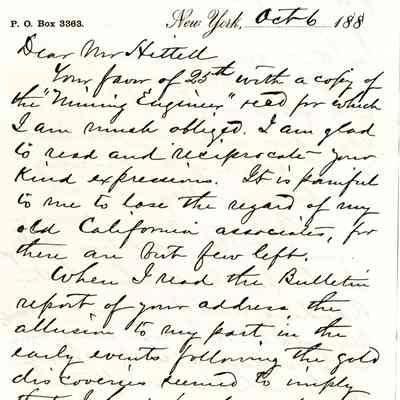 P. O. Box 3363. New York, Oct 6 188
Dear Mr Hittell
Your favor of 25th with a copy of
the "Mining Engineer" recd for which
I am much obliged. I am glad
to read and reciprocate your
kind expressions. It is painful
to me to lose the regard of my
old California associates, for
there are but few left.
When I read the Bulletin
report of your address, the
allusion to my part in the
early events following the gold
discoveries seemed to imply